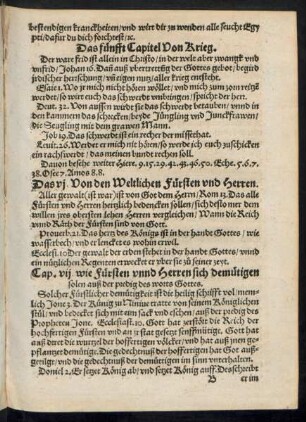 bestendigen kranckheiten/ vnd wirt dir zu wenden alle seucht Egy
pti/ dafur du dich förchtest/ ꝛc.
Das fünfft Capitel Von Krieg.
Der ware frid ist allein in Christo/ in der welt aber zwangk vnd
vnfrid/ Johan 16. Daß auß vbertrettung der Gottes gebot/ begird
jrdischer herschung/ vñ eigen nutz/ aller krieg entsteht.
Esaie 1. Wo jr mich nicht hören wöllet/ vnd mich zum zorn reitzẽ
werdet/ so wirt euch das schwerdt vmbringen/ spricht der herr.
Deut. 32. Von aussen wird sie das schwerdt berauben/ vnnd in
den kammern das schrecken/ beyde Jüngling vnd Junckfrawen/
die Seugling mit dem grawen Mann.
Job 19. Das schwerdt ist ein recher der missethat.
Leuit. 26. Werdet er mich nit hören/ so werde ich euch zuschicken
ein rachschwerdt/ das meinen bundt rechen soll.
Dauon besehe weiter Hiere. 9. 15. 29. 42. 43. 46. 50. Eche. 5. 6. 7.
38. Osee 7. Amos 8. 8.
Das vj. Von den Weltlichen Fürsten vnd Herren.
Aller gewalt (ist war) ist von Got dem Herrn/ Rom 13. Das alle
Fürsten vnd Herren hertzlich bedencken sollen/ sich des oder mer dem
willen jres obersten lehen Herren vergleichen/ Wann die Reich
vnd Räth der Fürsten sind von Gott.
Prouerb. 21. Das hertz des Königs ist in der handt Gottes/ wie
wasserbech/ vnd er lencket es wohin erwil.
Ecclesi. 10 Der gewalt der erden stehet in der handt Gottes/ vnd
ein nützlichen Regenten erwecket er vber sie zu seiner zeyt.
Cap. vij. wie Fürsten vnnd Herren sich demütigen
solen auß der predig des worts Gottes.
Solcher Fürstlicher demütigkeit ist die heilig schrifft vol/ mem-
lich Jone 3. Der König zu Niniue tratt von seinem Königlichen
stül/ vnd bedeckt sich mit ein sack vnd eschen/ auß der predig des
Propheten Jone. Ecclesiast. 10. Gott hat zerstört die Reich der
hochfertigen Fürsten/ vnd an jr stat gesetzt senfftmütige. Gott hat
auß dürr die wurtzel der hoffertigen völcker/ vnd hat auß jnen ge-
pflantzet demütige. Die gedechtnuß der hoffertigen hat Got auß-
getilget/ vnd die gedechtnuß der demütigen im sinn vnterhalten.
Doniel 2. Er setzet König ab/ vnd setzet König auff. Des schreibt
B er im